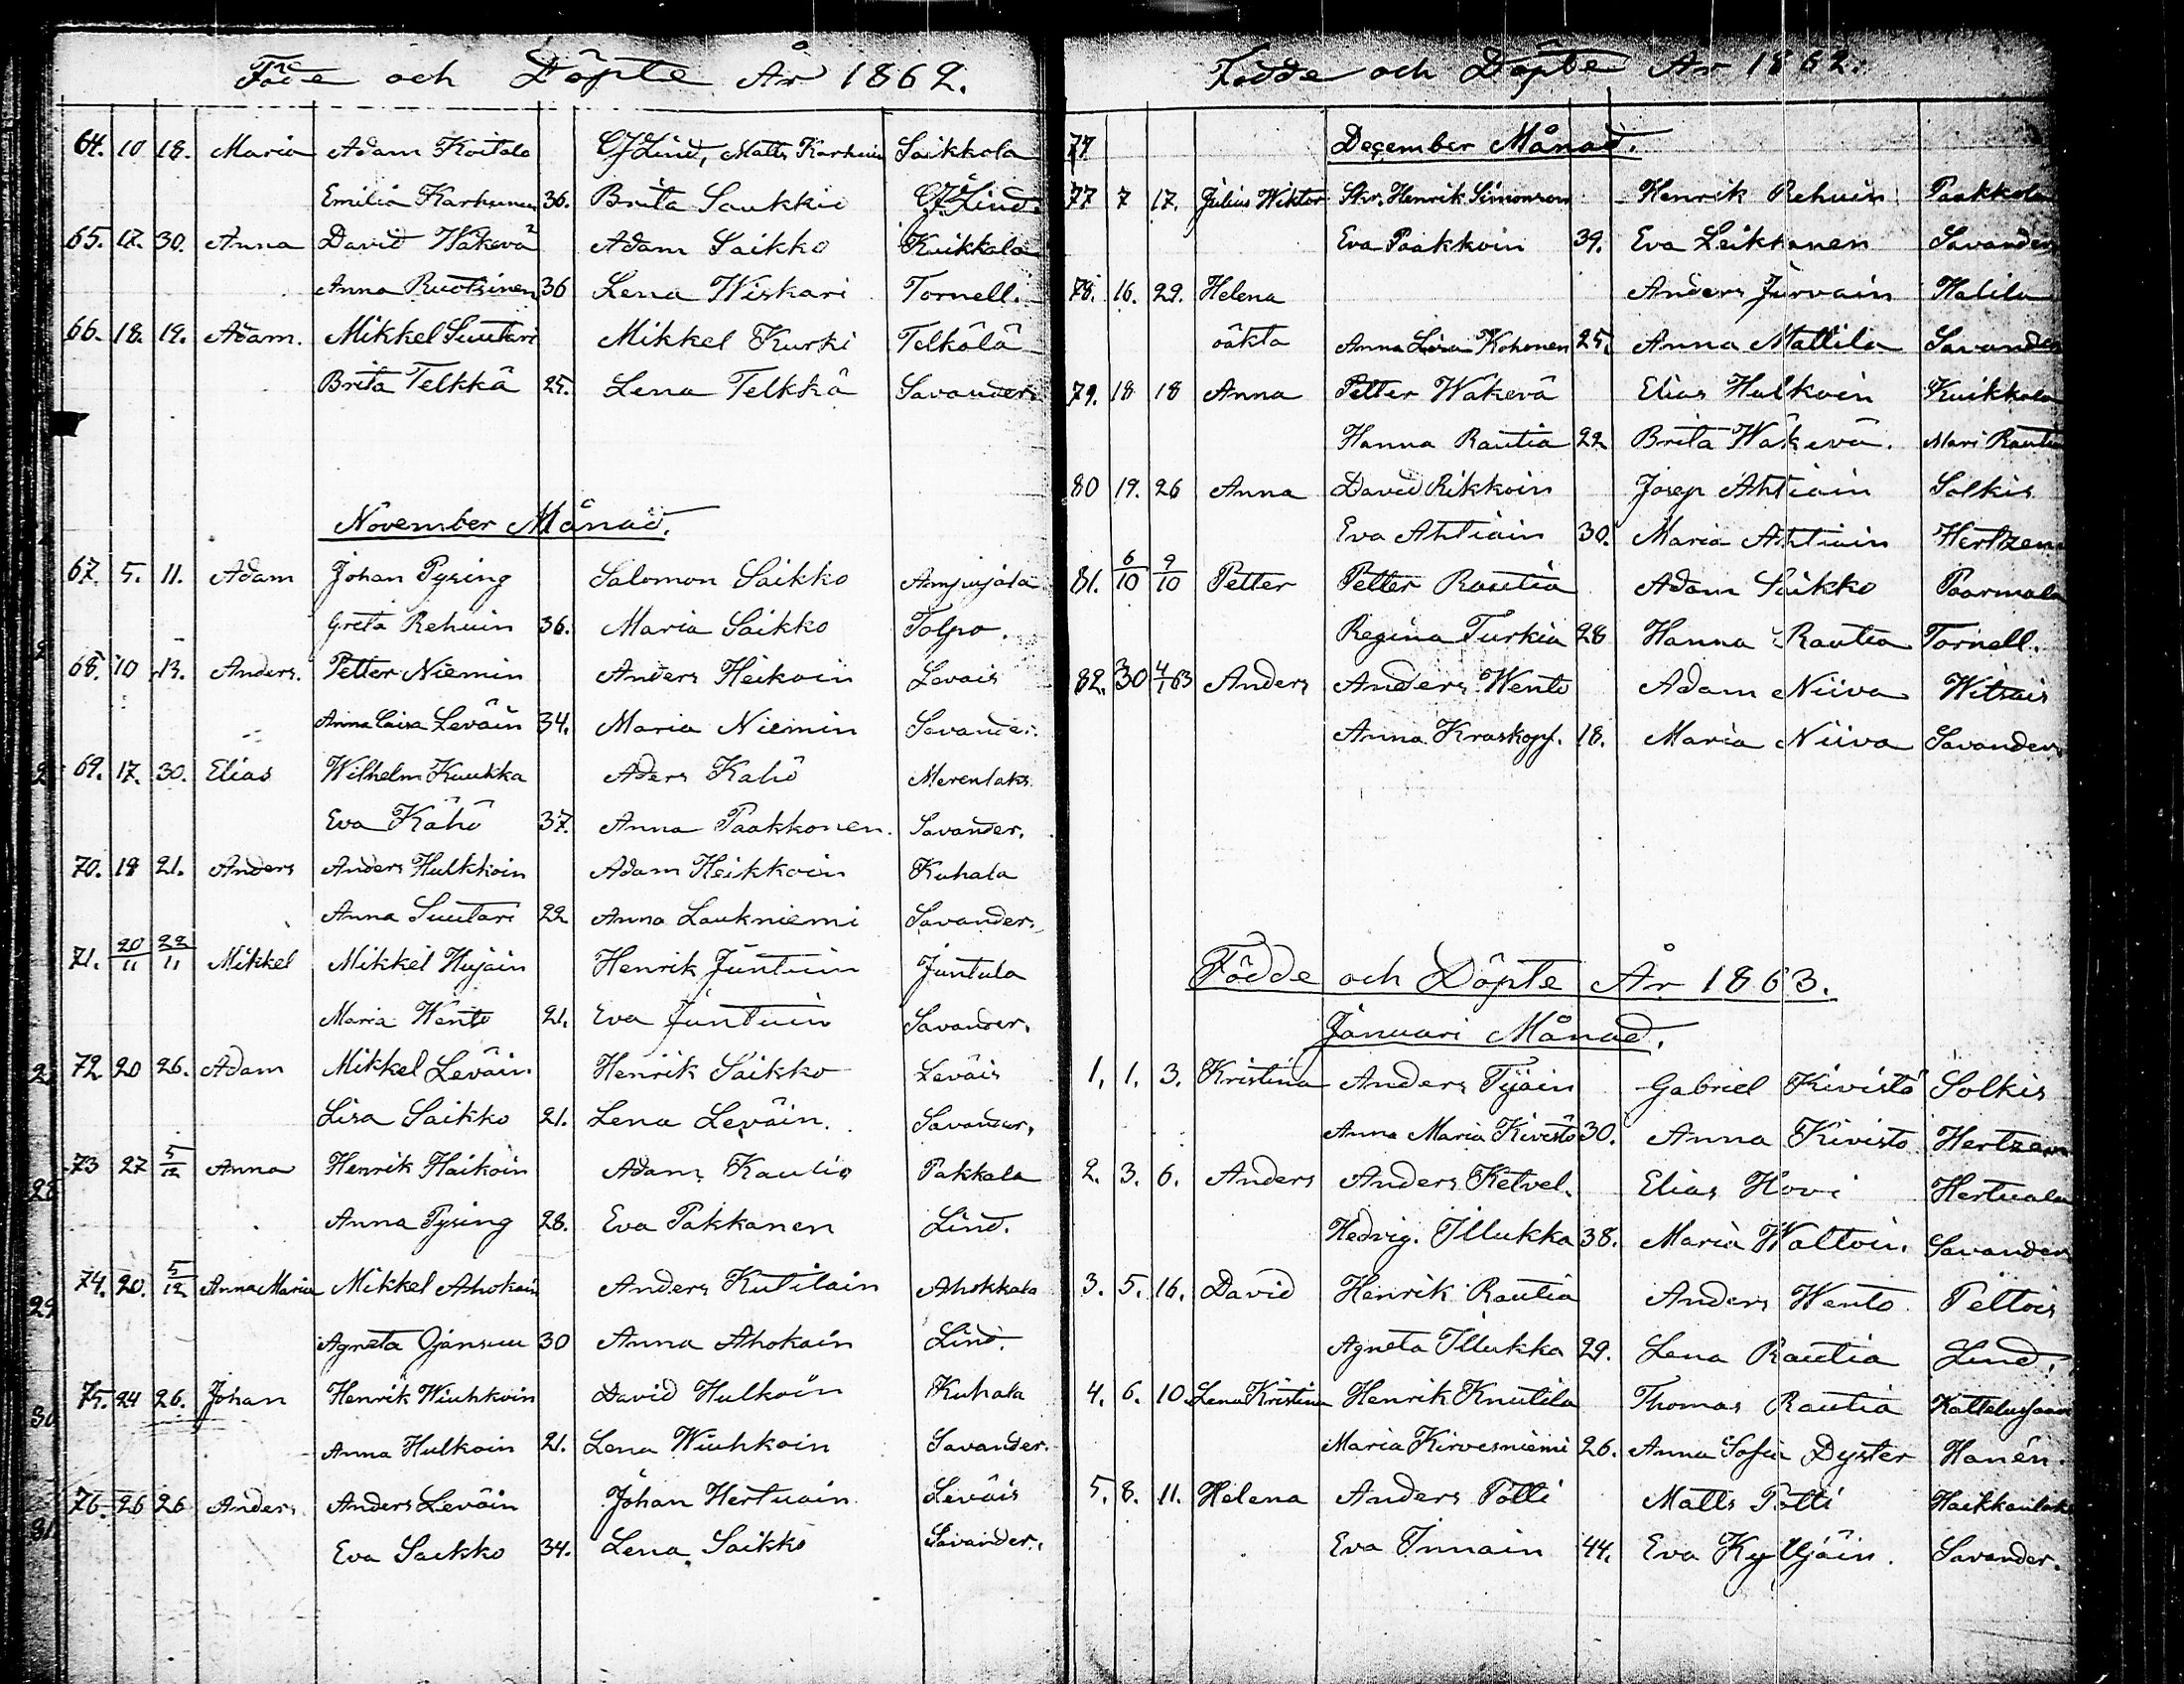 Födde och Döpte År 1862.
64. 10 18. Maria Adam Koitala CJLind, Matts Karhuin Saikkola
Emilia Karhunen 36. Brita Saukkio CJLind.
65. 17. 30. Anna David Wäkevä Adam Saikko Kuikkala
Anna Ruotsinen 36 Lena Wiskari Tornell.
66. 18. 19. Adam. Mikkel Suutari Mikkel Kurki Telkälä
Brita Telkkä 25. Lena Telkkä Savander
November Månad.
67. 5. 11. Adam Johan Pysing Salomon Saikko
Greta Rehuin 36. Maria Saikko Tolpo.
68. 10 13. Anders. Petter Niemin Anders Heikoin Levais
Anna Caisa Leväin 34. Maria Niemin Savander.
69. 17. 30. Elias Wilhelm Kuukka Aders Kähö Merenlaks.
Eva Kähö 37. Anna Paakkonen. Savander.
70. 19 21. Anders Anders Hulkkoin Adam Heikkoin Kuhala
Anna Suutari 22 Anna Laukniemi Savander.
71. 20/11 22/11 Mikkel Mikkel Hujain Henrik Juntuin Juntula
Maria Wento 21. Eva Juntuin Savander.
72 20 26. Adam Mikkel Leväin Henrik Saikko Leväis
Lisa Saikko 21. Lena Leväin. Savander.
73 27 5/12 Anna Henrik Haikoin Adam Pakkala
Anna Pysing 28. Eva Pakkanen Lind.
74. 20. 5/12 Anna Maria Mikkel Ahokain Anders Kutilain Ahokkala
Agneta Ojansuu 30 Anna Ahokain Lind.
75. 24 26. Johan Henrik Wiuhkoin David Hulkoin Kuhala
Anna Hulkoin 21. Lena Wiuhkoin Savander.
76. 26 26 Anders. Anders Leväin Johan Hertuain Leväis
Eva Saikko 34. Lena Saikko Savander.
Födde och Döpte År 1862.
77 December Månad.
77 7 17. Julius Wiktor Skr. Henrik Simonson Henrik Rehuin Paakkola
Eva Paakkoin 39. Eva Leikkanen Savander
78. 16. 29. Helena Anders Jurvain Halila
oäkta Anna Lisa Kohonen 25. Anna Mattila Savander
79. 18 18 Anna Petter Wäkevä Elias Hulkoin Kuikkala
Hanna Rautia 22 Brita Wäkevä. Mari Rautia
80 19. 26 Anna David Rikkoin Josep Ahtiain Solkis
Eva Ahtiain 30. Maria Ahtiain Hertzen
81. 6/10 9/10 Petter Petter Rautia Adam Saikko Paarmala
Regina Turkia 28 Hanna Rautia Tornell.
82. 30 4/1 63 Anders Anders Wento Adam Niiva Witsais
Anna Kraskopf. 18. Maria Niiva Savander
Födde och Döpte År 1863.
Januari Månad.
1. 1. 3. Kristina Anders Tijäin Gabriel Kivistö Solkis
Anna Maria Kivistö 30. Anna Kivisto Hertzen
2. 3. 6. Anders Anders Ketvel. Elias Hovi Hertuala
Hedvig. Illukka 38. Maria Waltoin. Savander
3. 5. 16. David Henrik Rautia Anders Wento Peltois
Agneta Illukka 29. Lena Rautia Lind.
4. 6. 10. Lena Kristina Henrik Knutila Thomas Rautia Kattelussaari
Maria Kirvesniemi 26. Anna Sofia Dyster Hanén.
5. 8. 11. Helena Anders Potti Matts Potti
Eva Innain 44. Eva Kyttjäin. Savander.